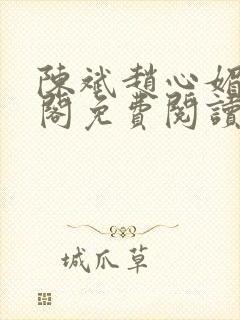 陳斌趙心媚
閣免費閱讀
城爪草